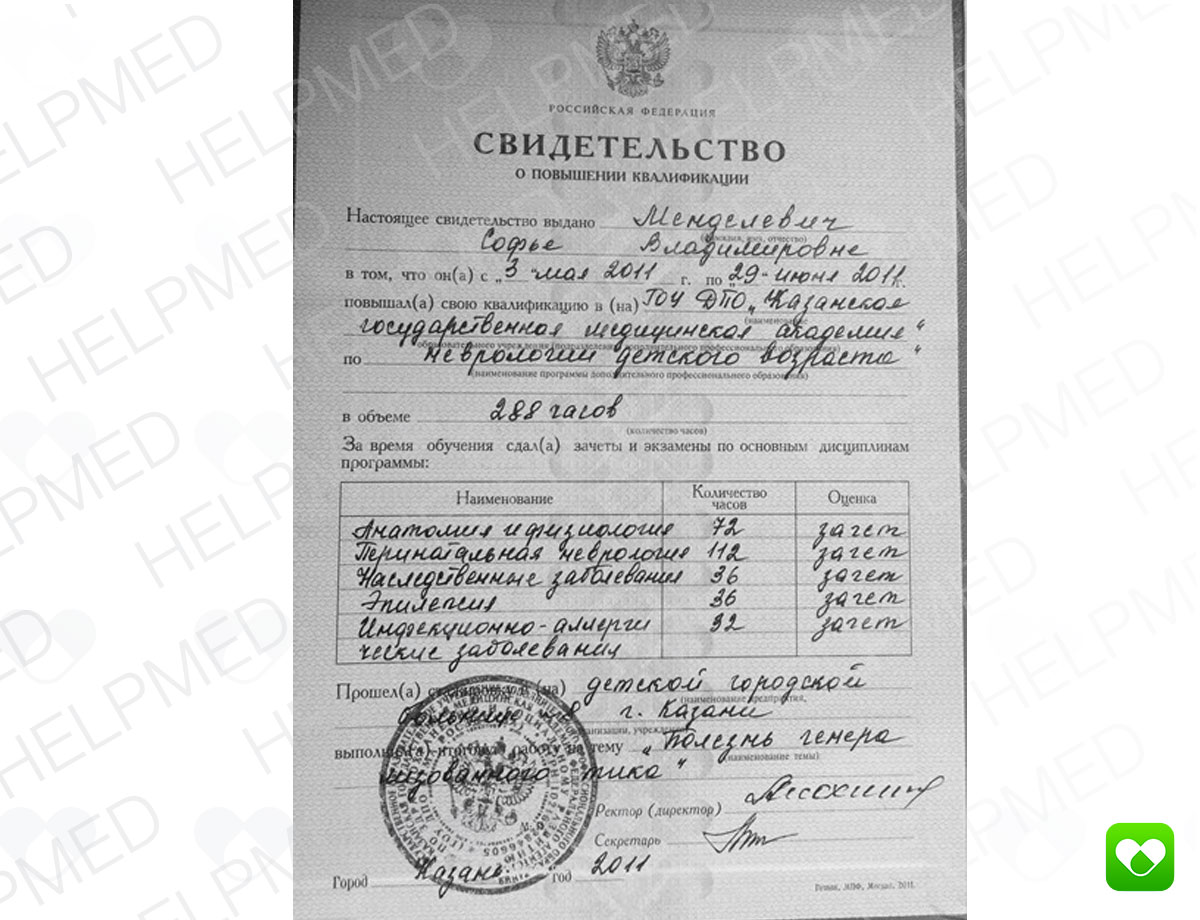 РОССИЙСКАЯ ФЕДЕРАЦИЯ
СВИДЕТЕЛЬСТВО
О ПОВЫШЕНИИ КВАЛИФИКАЦИИ
Настоящее свидетельство выдано Менделевич
(фамилия, имя, отчество)
Софье Владимировне
в том, что он(а) с „3 мая 2011 г. по „29" июня 2011 г.
повышал(а) свою квалификацию в (на) ГОУ ДПО „Казанская
(наименование
государственная медицинская академия"
образовательного учреждения (подразделения) дополнительного профессионального образования)
по неврологии детского возраста"
(наименование программы дополнительного профессионального образования)
в объеме 288 часов
(количество часов)
За время обучения сдал(а) зачеты и экзамены по основным дисциплинам
программы:
Наименование Количество часов Оценка
Анатомия и физиология 72 зачет
Перинатальная неврология 112 зачет
Наследственные заболевания 36 зачет
Эпилепсия 36 зачет
Инфекционно-аллерги 32 зачет
ческие заболевания
Прошел(а) стажировку в (на) детской городской
(наименование предприятия,
больнице г. Казани
организации, учреждения)
выполнил(а) итоговую работу на тему „Болезнь генера
(наименование темы)
лизованного тика"
Ректор (директор)
Секретарь
Город Казань год 2011
Гознак, МПФ, Москва, 2011.
HELPMED